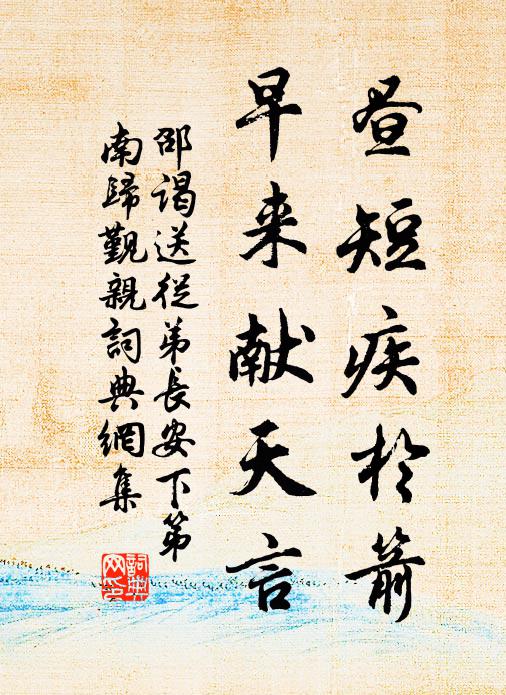 昼短疾於箭
早来献天言
邵谒送從弟長安下第
南歸觐親詞典網集
詞典網印